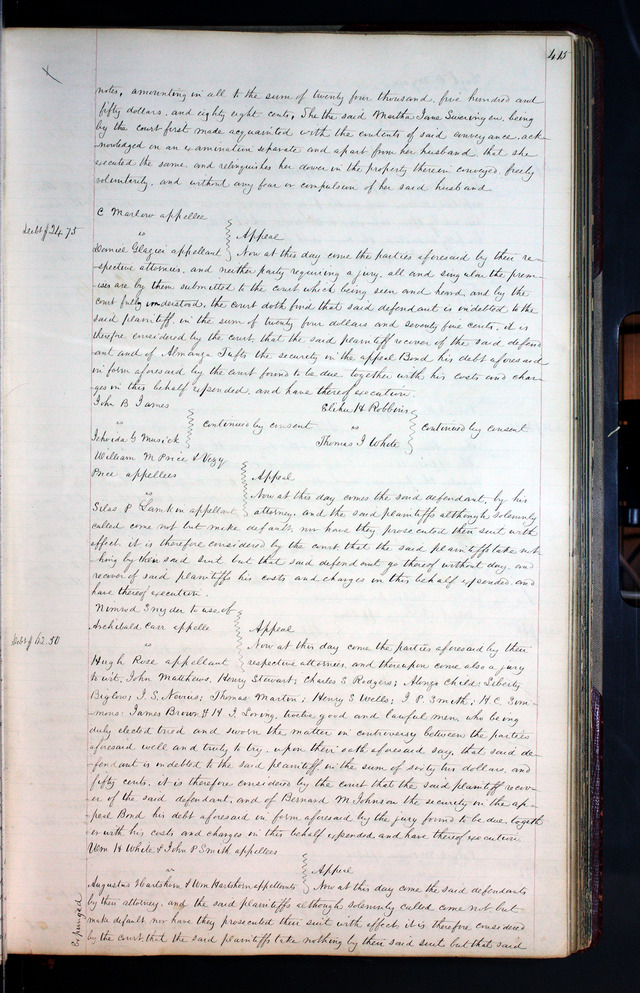 415
notes, amounting in all to the sum of twenty four thousand, five hundred and
fifty dollars, and eighty eight cents, She the said Martha Jane Swearingen, being
by the court first made acquainted with the contents of said conveyance, ack-
nowledged on an examination separate and apart from her husband, that she
executed the same, and relinquishes her dower in the property therein conveyed, freely
voluntarily, and without any fear or compulsion of her said husband
C Marlow appellee
Debt $24.75
vs
Appeal
Daniel Glazier appellant
Now at this day come the parties aforesaid by their re-
spective attornies, and neither party requiring a jury, all and singular the prem-
ises are by them submitted to the court which being seen and heard, and by the
court fully understood, the court doth find that said defendant is indebted to the
said plaintiff, in the sum of twenty four dollars and seventy five cents, it is
therefore considered by the court that the said plaintiff recover of the said defend
ant and of Almanza Tufts the security in the appeal Bond his debt aforesaid
in form aforesaid by the court found to be due together with his costs and char-
ges in this behalf expended, and have thereof execution.
John B James
vs
continued by consent
G Musick
Elihu H Robbins
vs
continued by consent
Thomas J White
William M Price &
Price appellees
Appeal
vs
Now at this day comes the said defendant, by his
Silas P Lamkin appellant
attorney, and the said plaintiffs although solemnly
called come not but make default, nor have they prosecuted their suit with
effect, it is therefore considered by the court that the said plaintiffs take not
hing by their said suit but that said defendant go thereof without day, and
recover of said plaintiffs his costs and charges in this behalf expended and
have thereof execution.
Nimrod Snyder to use of
Archibald Carr appelle
Appeal
Debt $62.50
vs
Now at this day come the parties aforesaid by their
Hugh Rose appellant
respective attornies, and thereupon come also a jury
to wit, John Matthews, Henry Stewart; Charles E Rodgers; Alonzo Child; Liberty
Biglow; J. S. Nevius; Thomas Martin; Henry S Wells; J. P. Smith; H.C. Sim-
mons: James Brown & H J. Loring, twelve good and lawful men, who being
duly elected tried and sworn the matter in controversy between the parties
aforesaid well and truly to try, upon their oath aforesaid say, that said de-
fendant is indebted to the said plaintiff in the sum of sixty two dollars, and
fifty cents, it is therefore considered by the court that the said plaintiff recov-
er of the said defendant, and of Bernard M Johnson the security in the ap-
peal Bond his debt aforesaid in form aforesaid by the jury found to be due, togeth
er with his costs and charges in this behalf expended and have thereof execution
Wm H White & John P Smith appellees
vs
Appeal
Augustus Hartshorn & Wm Hartshorn appellants
Now at this day come the said defendants
by their attorney, and the said plaintiffs although solemnly called come not but
make default, nor have they prosecuted their suit with effect, it is therefore considered
by the court that the said plaintiffs take nothing by their said suit but that said
Expunged